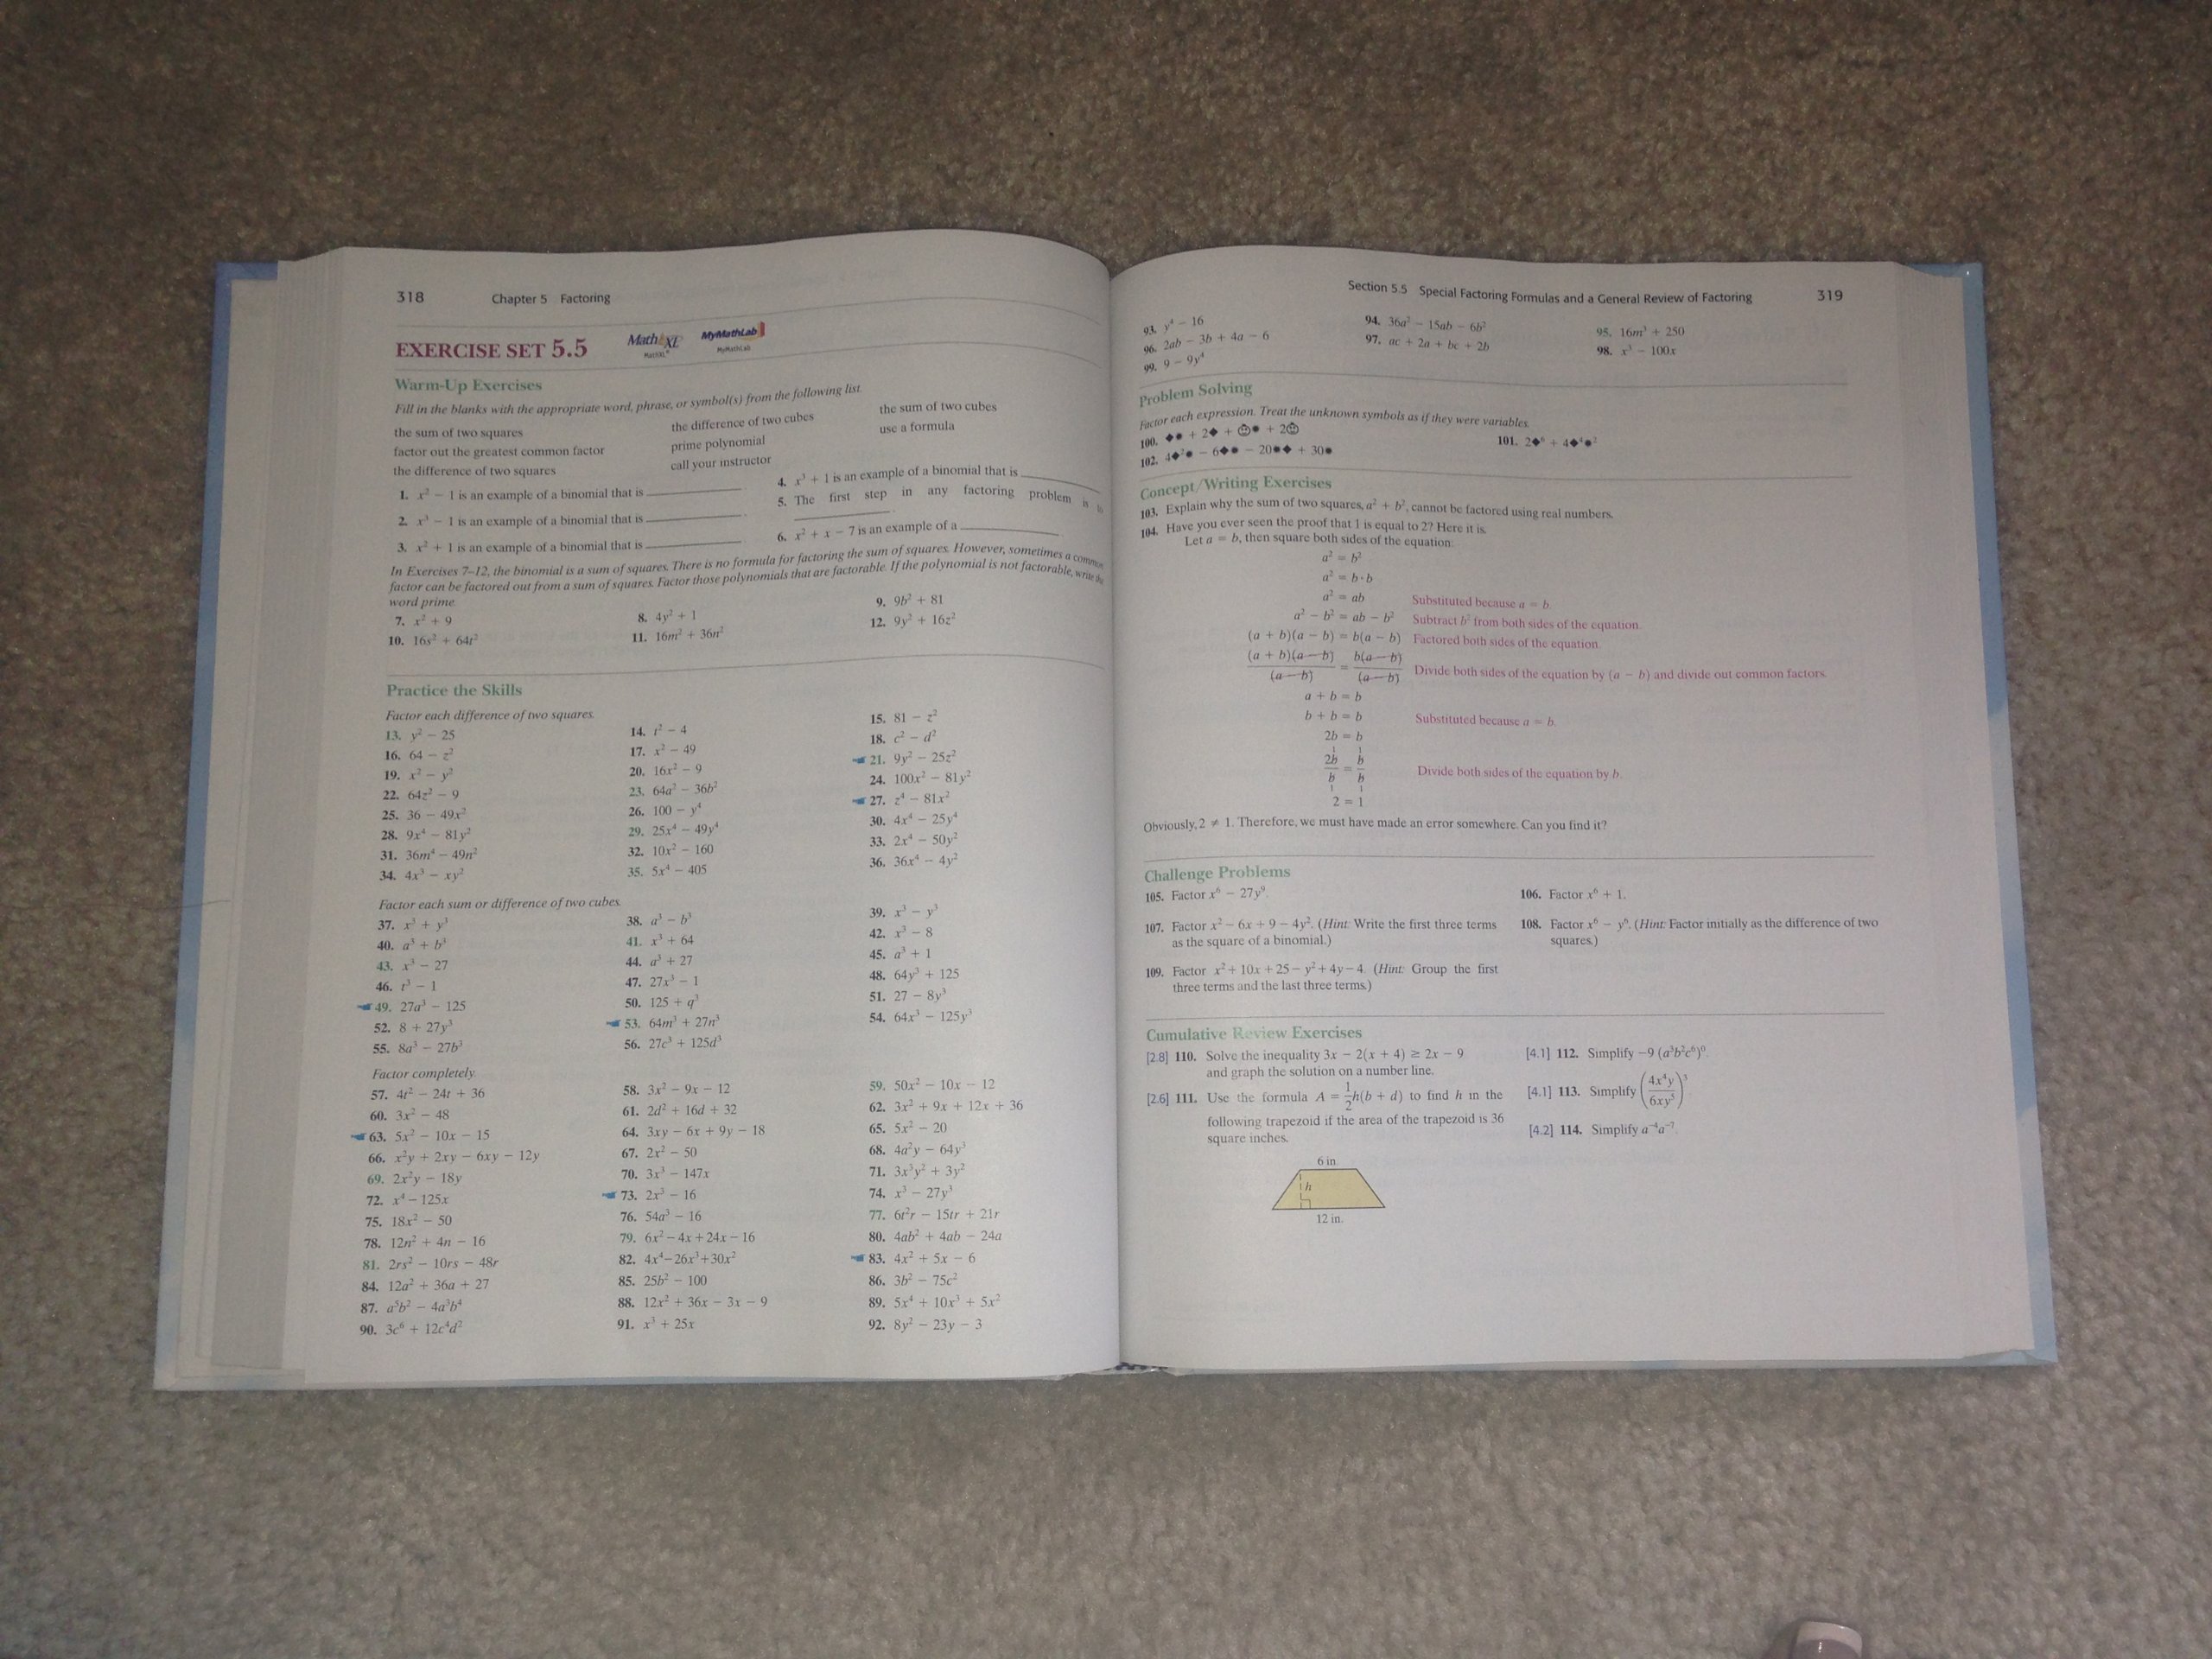 318 Chapter 5 Factoring
EXERCISE SET 5.5
Math XL
MathXL®
MyMathLab
MyMathLab
Warm-Up Exercises
Fill in the blanks with the appropriate word, phrase, or symbol(s) from the following list.
the sum of two squares the difference of two cubes the sum of two cubes
factor out the greatest common factor prime polynomial use a formula
the difference of two squares call your instructor
1. x² − 1 is an example of a binomial that is ________.
2. x³ − 1 is an example of a binomial that is ________.
3. x² + 1 is an example of a binomial that is ________.
4. x³ + 1 is an example of a binomial that is ________
5. The first step in any factoring problem is to
________.
6. x² + x − 7 is an example of a ________.
In Exercises 7–12, the binomial is a sum of squares. There is no formula for factoring the sum of squares. However, sometimes a common
factor can be factored out from a sum of squares. Factor those polynomials that are factorable. If the polynomial is not factorable, write the
word prime.
7. x² + 9 8. 4y² + 1 9. 9b² + 81
10. 16s² + 64t² 11. 16m² + 36n² 12. 9y² + 16z²
Practice the Skills
Factor each difference of two squares.
13. y² − 25 14. t² − 4 15. 81 − z²
16. 64 − z² 17. x² − 49 18. c² − d²
19. x² − y² 20. 16x² − 9 21. 9y² − 25z²
22. 64z² − 9 23. 64a² − 36b² 24. 100x² − 81y²
25. 36 − 49x² 26. 100 − y⁴ 27. z⁴ − 81x²
28. 9x⁴ − 81y² 29. 25x⁴ − 49y⁴ 30. 4x⁴ − 25y⁴
31. 36m⁴ − 49n² 32. 10x² − 160 33. 2x⁴ − 50y²
34. 4x³ − xy² 35. 5x⁴ − 405 36. 36x⁴ − 4y²
Factor each sum or difference of two cubes.
37. x³ + y³ 38. a³ − b³ 39. x³ − y³
40. a³ + b³ 41. x³ + 64 42. x³ − 8
43. x³ − 27 44. a³ + 27 45. a³ + 1
46. t³ − 1 47. 27x³ − 1 48. 64y³ + 125
49. 27a³ − 125 50. 125 + q³ 51. 27 − 8y³
52. 8 + 27y³ 53. 64m³ + 27n³ 54. 64x³ − 125y³
55. 8a³ − 27b³ 56. 27c³ + 125d³
Factor completely.
57. 4t² − 24t + 36 58. 3x² − 9x − 12 59. 50x² − 10x − 12
60. 3x² − 48 61. 2d² + 16d + 32 62. 3x² + 9x + 12x + 36
63. 5x² − 10x − 15 64. 3xy − 6x + 9y − 18 65. 5x² − 20
66. x²y + 2xy − 6xy − 12y 67. 2x² − 50 68. 4a²y − 64y³
69. 2x²y − 18y 70. 3x³ − 147x 71. 3x³y² + 3y²
72. x⁴ − 125x 73. 2x³ − 16 74. x³ − 27y³
75. 18x² − 50 76. 54a³ − 16 77. 6t²r − 15tr + 21r
78. 12n² + 4n − 16 79. 6x² − 4x + 24x − 16 80. 4ab² + 4ab − 24a
81. 2rs² − 10rs − 48r 82. 4x⁴ − 26x³ + 30x² 83. 4x² + 5x − 6
84. 12a² + 36a + 27 85. 25b² − 100 86. 3b² − 75c²
87. a⁵b² − 4a³b⁴ 88. 12x² + 36x − 3x − 9 89. 5x⁴ + 10x³ + 5x²
90. 3c⁶ + 12c⁴d² 91. x³ + 25x 92. 8y² − 23y − 3
Section 5.5 Special Factoring Formulas and a General Review of Factoring 319
93. y⁴ − 16 94. 36a² − 15ab − 6b² 95. 16m³ + 250
96. 2ab − 3b + 4a − 6 97. ac + 2a + bc + 2b 98. x³ − 100x
99. 9 − 9y⁴
Problem Solving
Factor each expression. Treat the unknown symbols as if they were variables.
100. ◆● + 2◆ + ☺● + 2☺ 101. 2◆⁶ + 4◆⁴●²
102. 4◆²● − 6◆● − 20●◆ + 30●
Concept/Writing Exercises
103. Explain why the sum of two squares, a² + b², cannot be factored using real numbers.
104. Have you ever seen the proof that 1 is equal to 2? Here it is.
Let a = b, then square both sides of the equation:
a² = b²
a² = b·b
a² = ab Substituted because a = b.
a² − b² = ab − b² Subtract b² from both sides of the equation.
(a + b)(a − b) = b(a − b) Factored both sides of the equation.
(a + b)(a − b) / (a − b) = b(a − b) / (a − b) Divide both sides of the equation by (a − b) and divide out common factors.
a + b = b
b + b = b Substituted because a = b.
2b = b
1 1
2b / b = b / b Divide both sides of the equation by b.
1 1
2 = 1
Obviously, 2 ≠ 1. Therefore, we must have made an error somewhere. Can you find it?
Challenge Problems
105. Factor x⁶ − 27y⁹. 106. Factor x⁶ + 1.
107. Factor x² − 6x + 9 − 4y². (Hint: Write the first three terms
as the square of a binomial.)
108. Factor x⁶ − y⁶. (Hint: Factor initially as the difference of two
squares.)
109. Factor x² + 10x + 25 − y² + 4y − 4. (Hint: Group the first
three terms and the last three terms.)
Cumulative Review Exercises
[2.8] 110. Solve the inequality 3x − 2(x + 4) ≥ 2x − 9
and graph the solution on a number line.
[2.6] 111. Use the formula A = 1/2 h(b + d) to find h in the
following trapezoid if the area of the trapezoid is 36
square inches.
6 in.
h
12 in.
[4.1] 112. Simplify −9 (a³b²c⁶)⁰.
[4.1] 113. Simplify (4x⁴y / 6xy⁵)³.
[4.2] 114. Simplify a⁻⁴a⁻⁷.